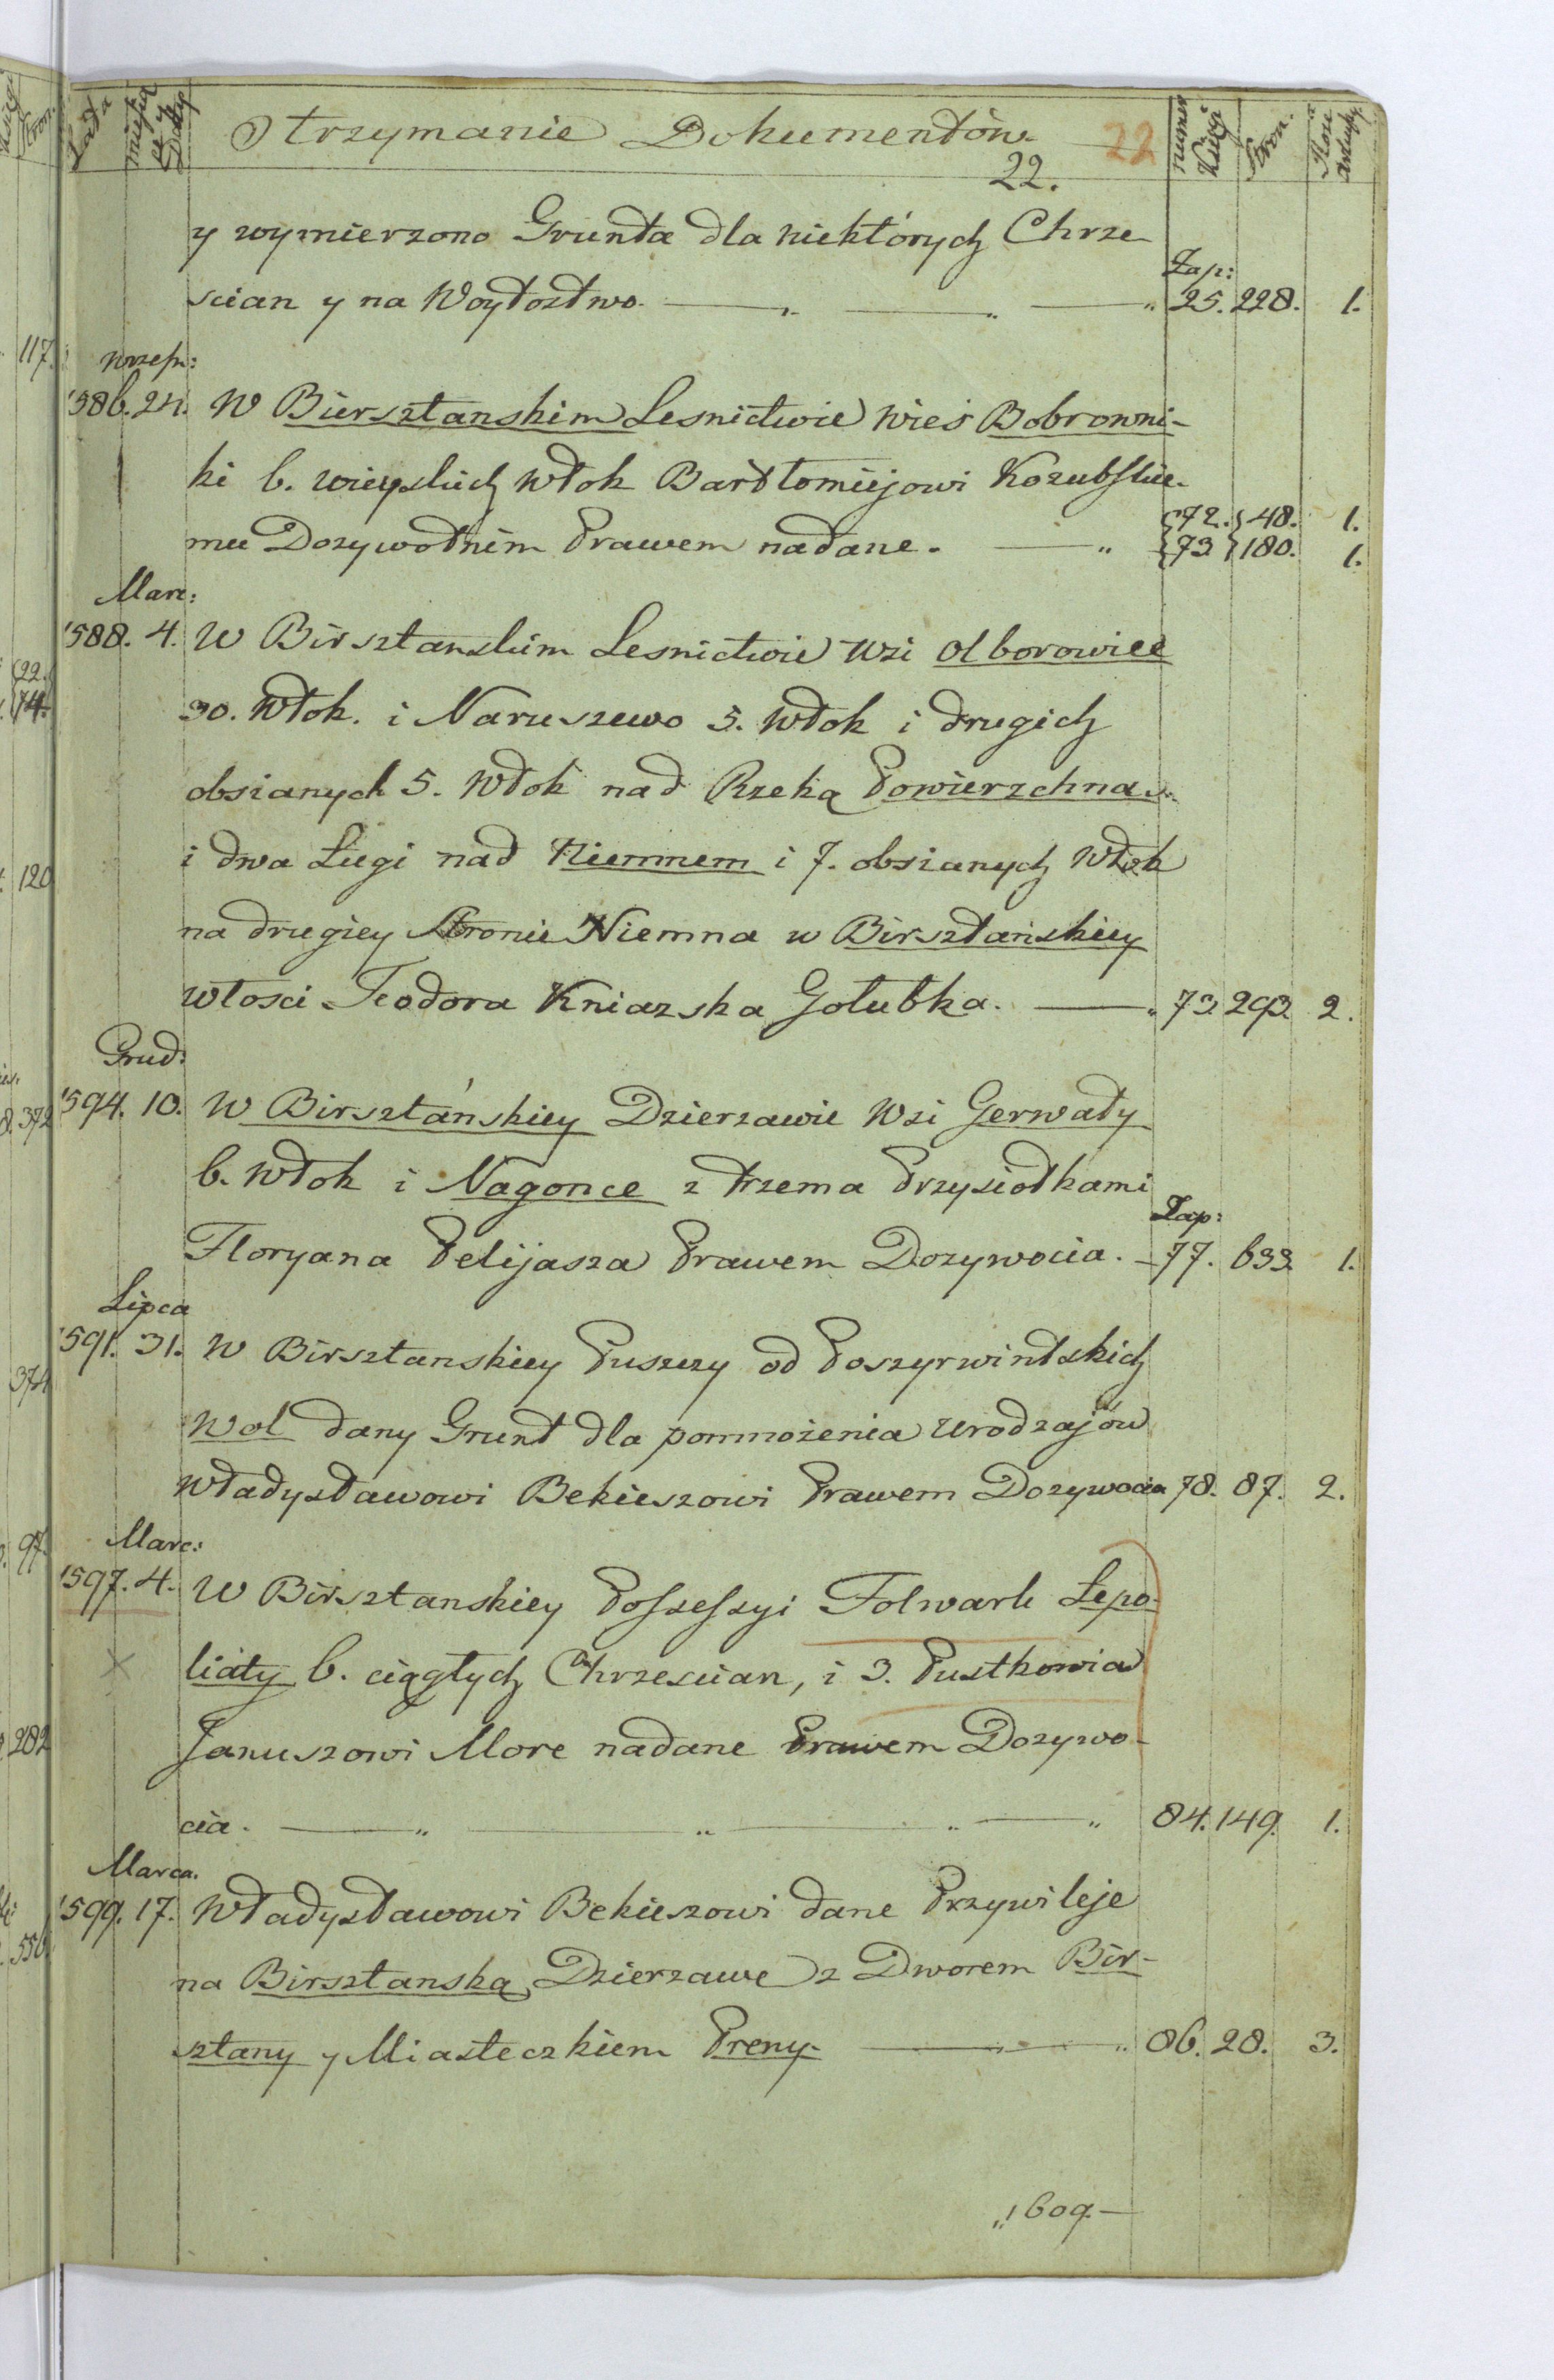 Lata
miesiąc y Datty
Otrzymanie Dokumentów
22
22.
numer Księgi
Stron.
y wymierzono Grunta dla niektórych Chrze
Zap:
scian y na Woytostwo. 25. 228. 1.
117.
Wrzes:
1586. 24. W Biersztanskim Lesnictwie Wieś Bobrowni-
ki 6. wieyskich Włok Bartłomiejowi Kozubskie-
72. 48. 1.
mu Dozywotnim Prawem nadane. 73 180. 1.
Marc:
1588. 4. W Birsztanskim Lesnictwie Wsi Olborowice
22.
74.
30. Włok. i Naruszewo 5. Włok i drugich
obsianych 5. Włok nad Rzeką Powierzchnas.
i dwa Ługi nad Niemnem i 7. obsianych Włok
120
na drugiey Stronie Niemna w Birsztańskiey
Włosci Teodora Kniazska Gołubka. 73 293 2.
Grud:
372
1594. 10. W Birsztańskiey Dzierzawie Wsi Gerwaty
6. Włok i Nagonce z trzema Przysiołkami
Zap:
Floryana Pelijasza Prawem Dozywocia. 77. 633. 1.
Lipca
1591. 31. W Birsztanskiey Puszczy od Poszyrwintskich
374
Wol dany Grunt dla pomnożenia Urodzajów
Władysławowi Bekieszowi Prawem Dozywocia 78. 87. 2.
Marc:
97.
1597. 4. W Birsztanskiey Possessyi Folwark Lepo-
liaty 6. ciągłych Chrzescian, i 3. Pustkowia
282
Januszowi More nadane Prawem Dozywo-
cia. 84. 149. 1.
Marca.
1599. 17. Władysławowi Bekieszowi dane Przywileje
550
na Birsztanską Dzierzawe z Dworem Bir-
sztany y Miasteczkiem Preny. 86. 28. 3.
1609.